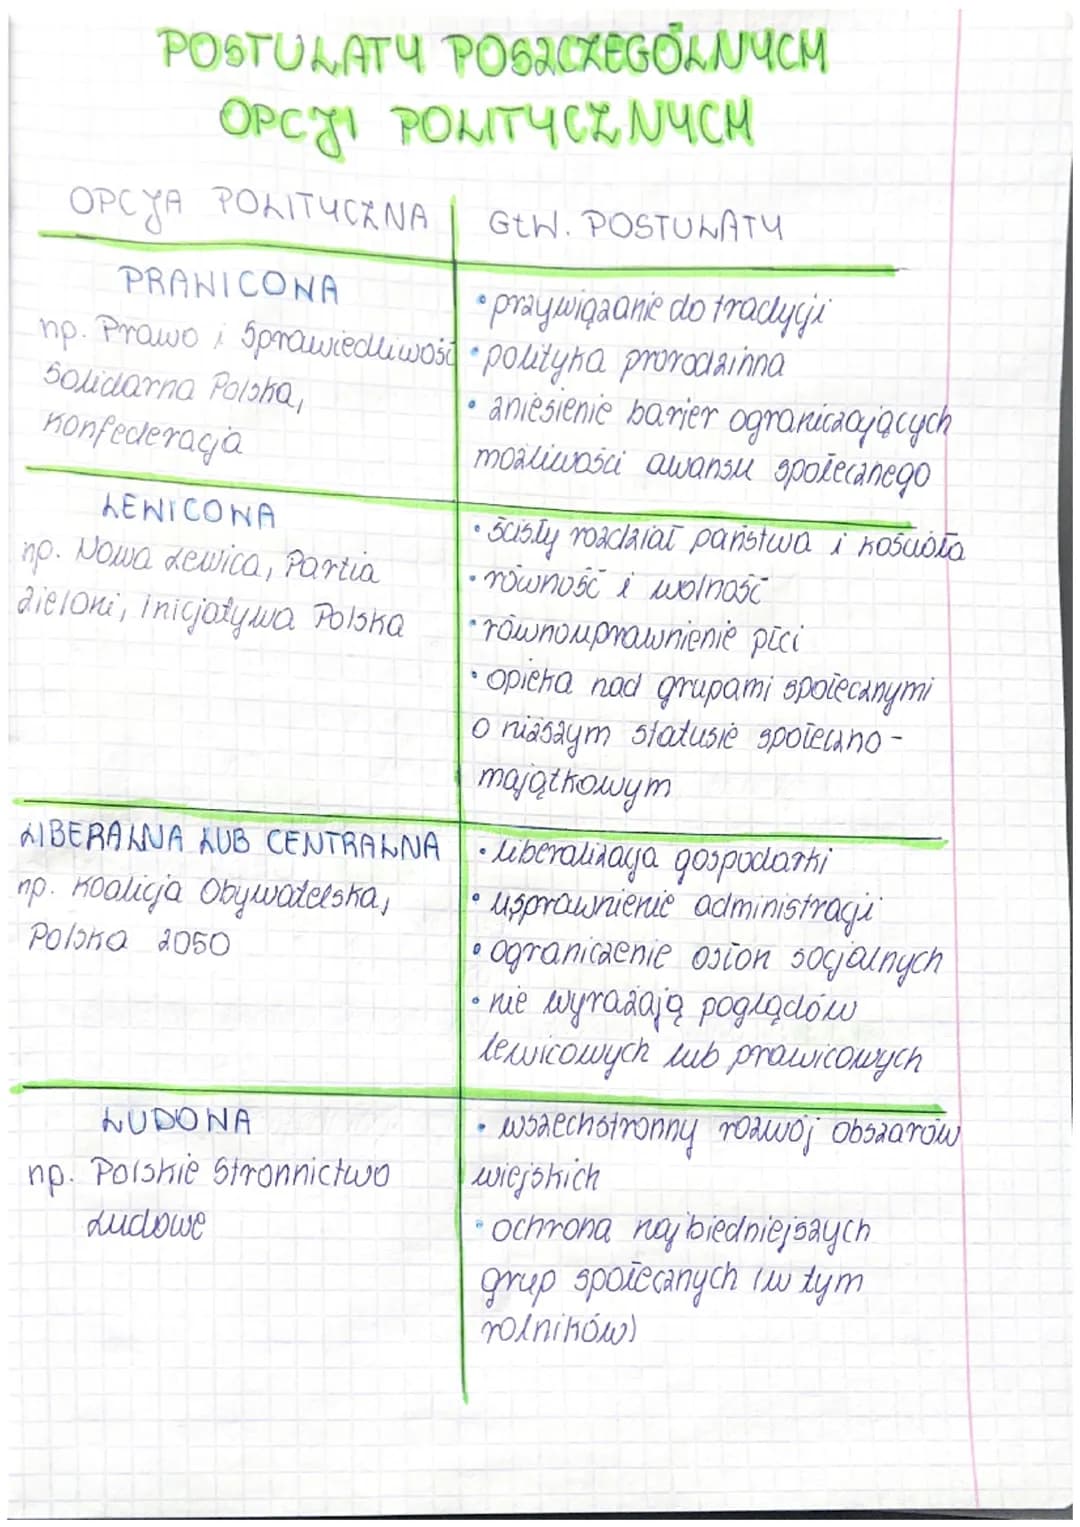 POSTULATY POSZCZEGÓLNYCH
OPCJI POLITYCZNYCH
OPCJA POLITYCZNA
GŁW. POSTULATY
PRAWICOWA
np. Prawo i Sprawiedliwość
Solidarna Polska,
Konfederacja
• przywiązanie do tradycji
• polityka prorodzinna
• zniesienie barier ograniczających
możliwości awansu społecznego
LEWICOWA
np. Nowa Lewica, Partia
Zieloni, Inicjatywa Polska
• ścisły rozdział państwa i kościoła
• równość i wolność
• równouprawnienie płci
• opieka nad grupami społecznymi
o niższym statusie społeczno-
majątkowym
LIBERALNA LUB CENTRALNA
np. Koalicja Obywatelska,
Polska 2050
• liberalizacja gospodarki
• usprawnienie administracji
• ograniczenie osłon socjalnych
• nie wyrażają poglądów
lewicowych lub prawicowych
LUDOWA
np. Polskie Stronnictwo
Ludowe
• wszechstronny rozwój obszarów
wiejskich
• ochrona najbiedniejszych
grup społecznych (w tym
rolników)